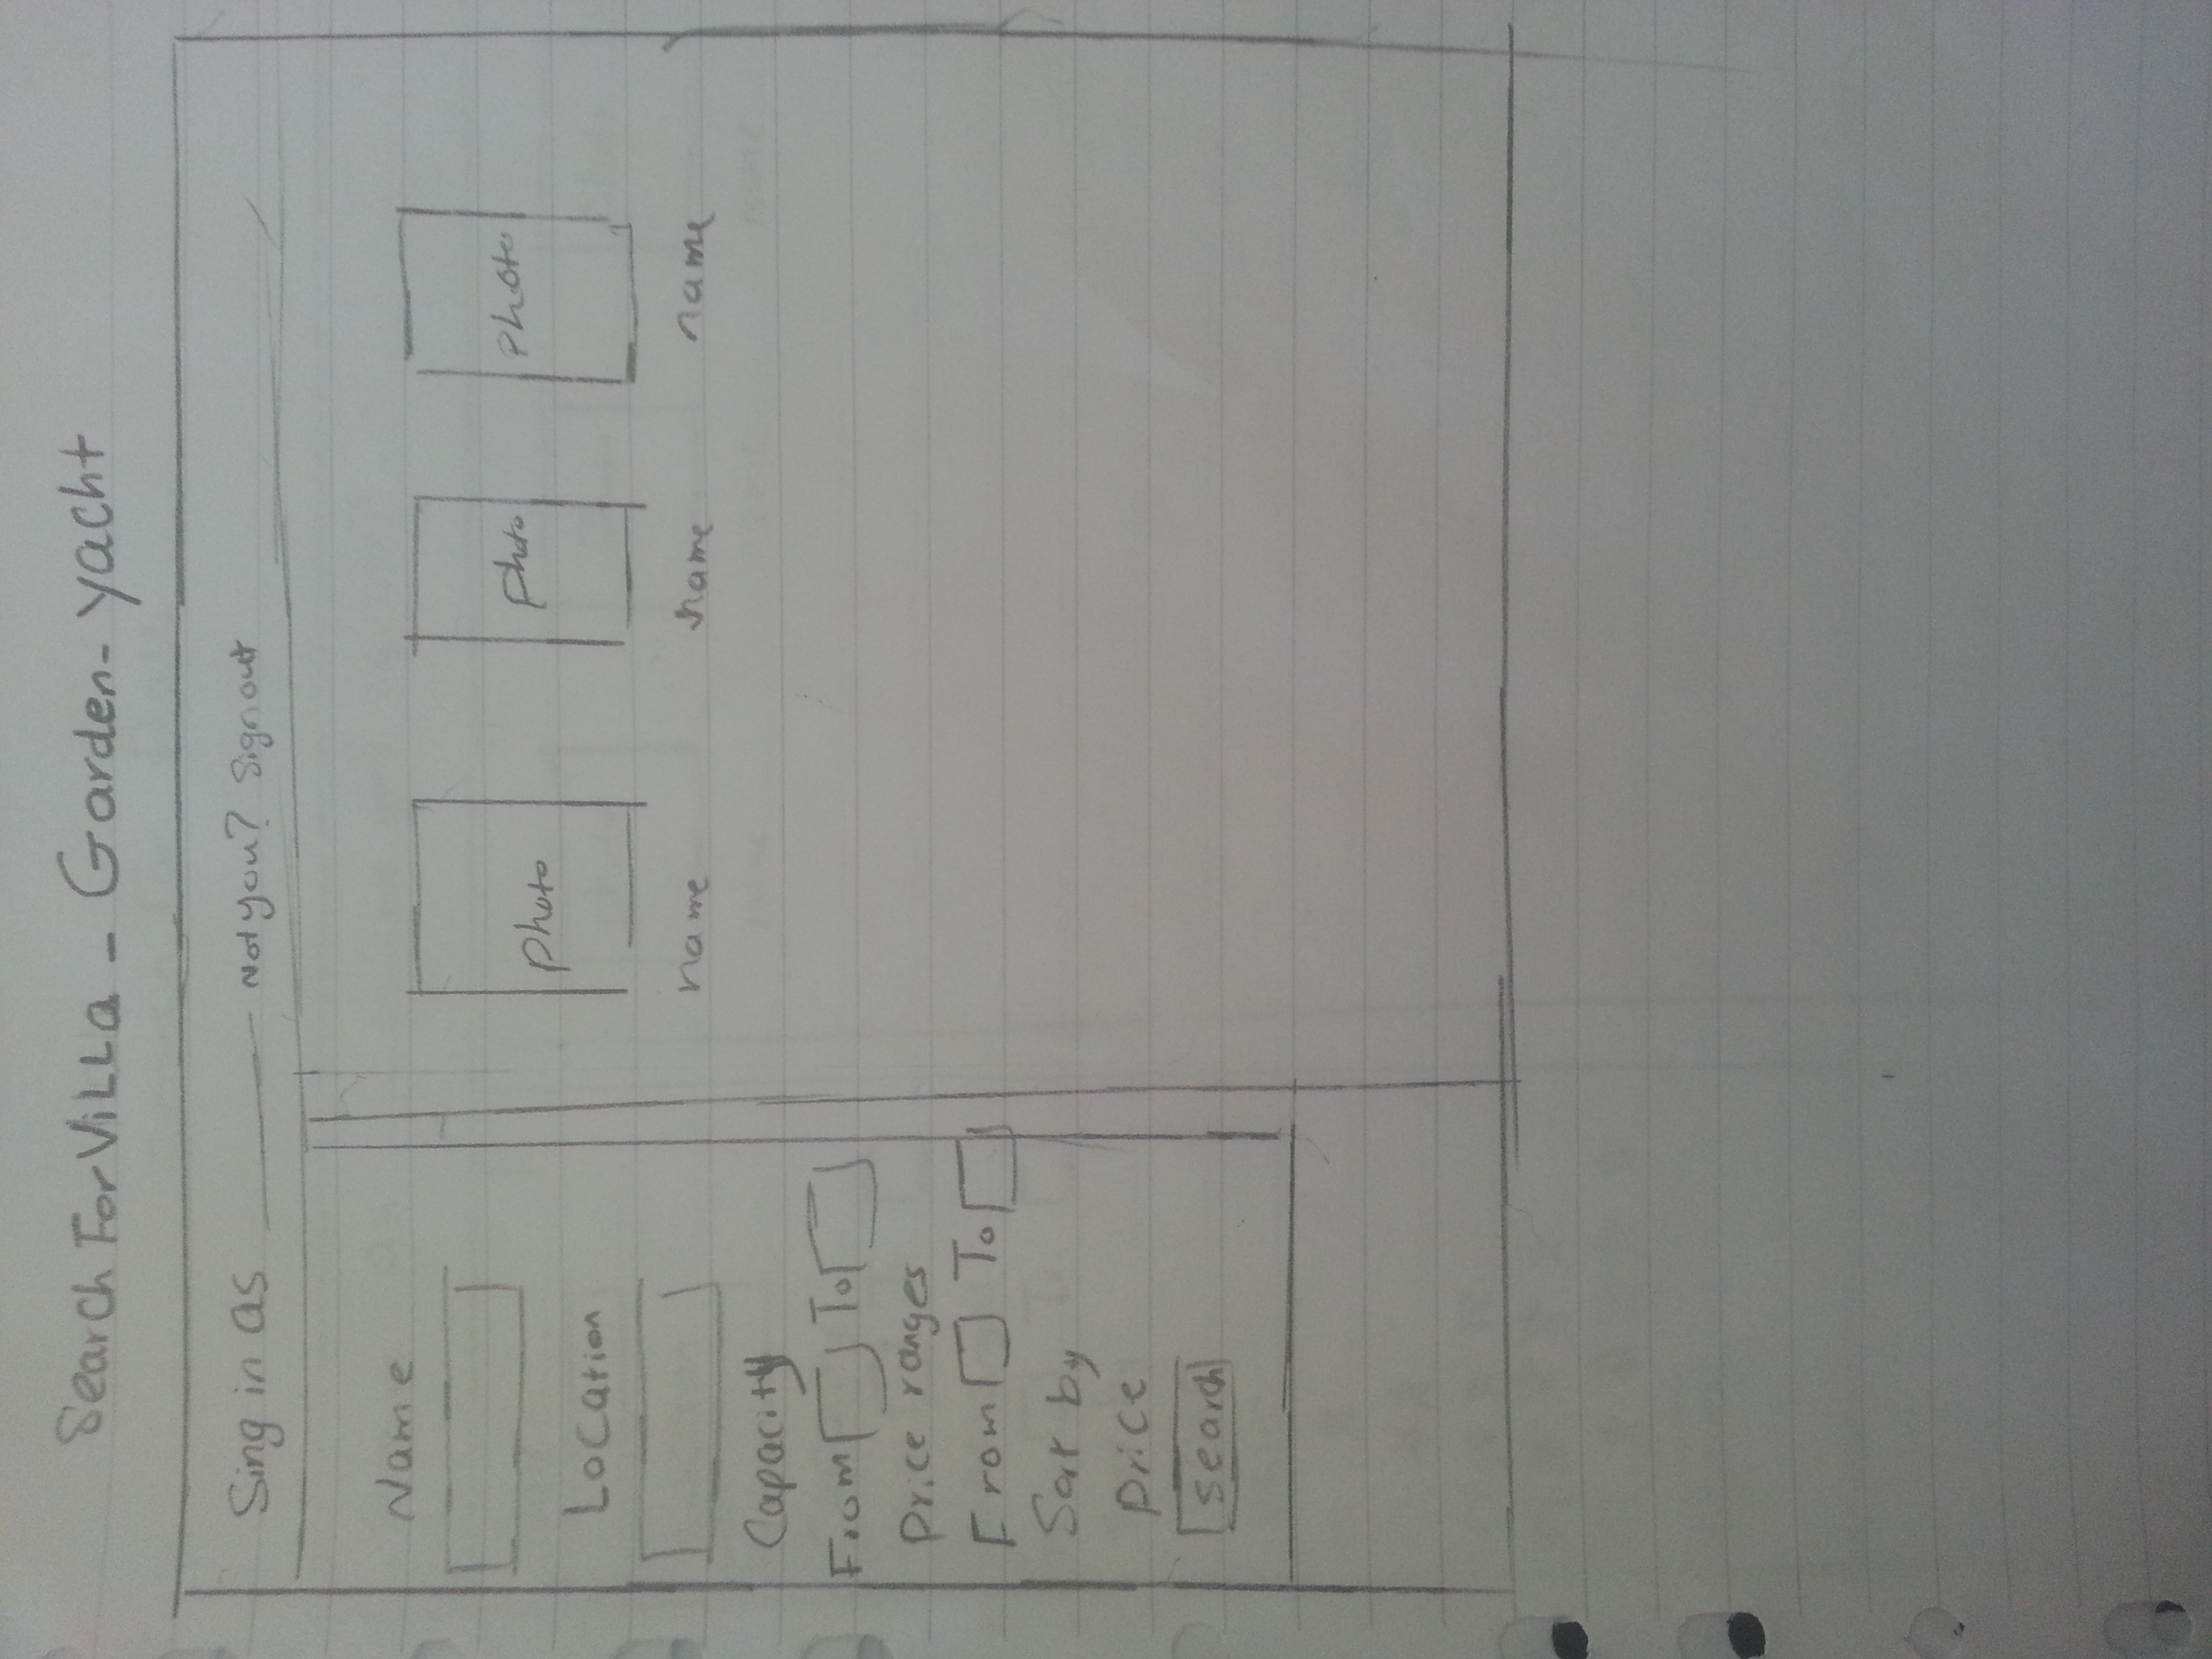 Search For Villa - Garden - yacht
Sing in as ______ Not you? Sign out
Name
Location
Capacity
From To
Price ranges
From To
Sort by
Price
search
photo photo photo
name name name